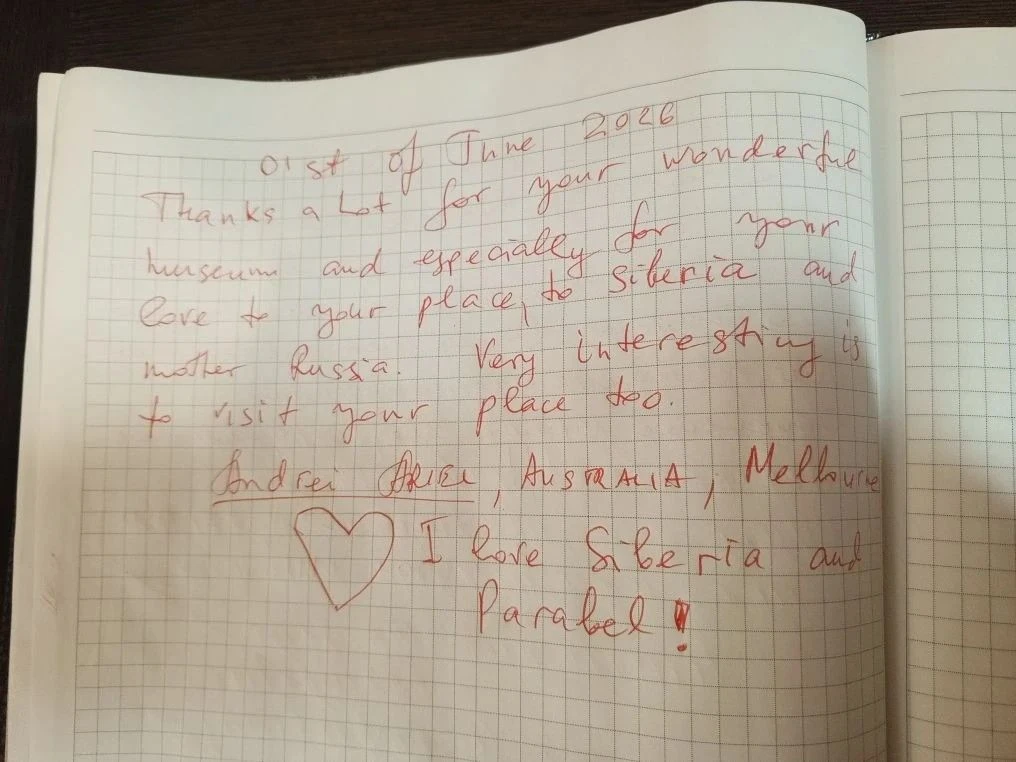 01st of June 2026
Thanks a Lot for your wonderful
museum and especially for your
love to your place, to Siberia and
mother Russia. Very interesting is
to visit your place too.
Andrei, AUSTRALIA, Melbourne
I love Siberia and
Parabel!